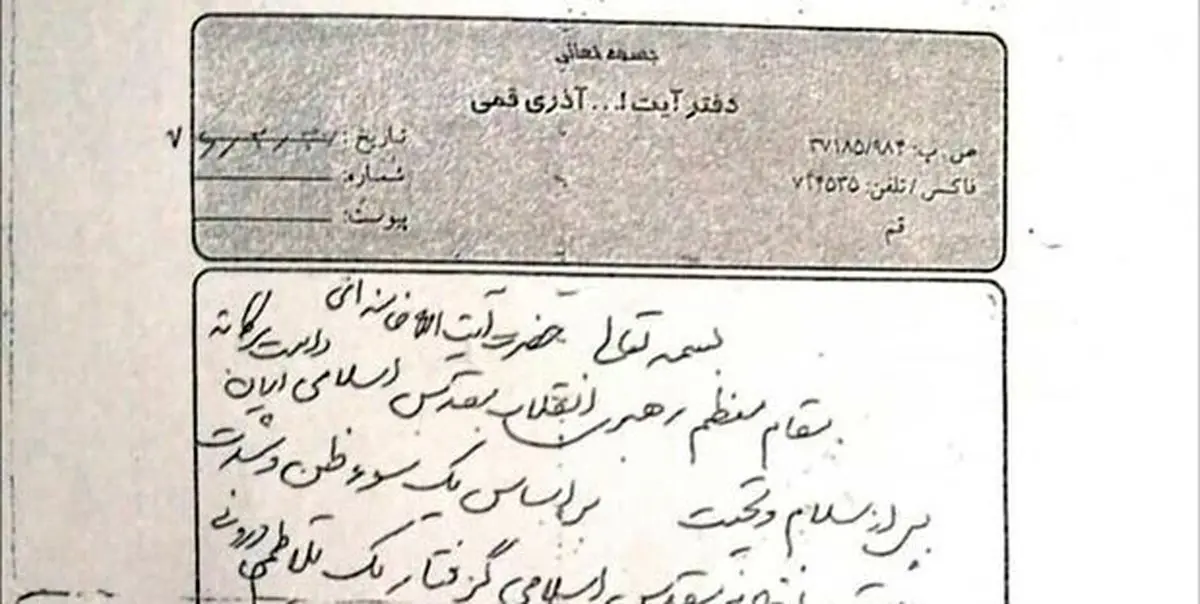 بسمه تعالی
دفتر آیت ا... آذری قمی
ص. ب: ۳۷۱۸۵/۹۸۴
فاکس / تلفن: ۷۴۴۵۳۵
قم
تاریخ:
شماره:
پیوست:
بسمه تعالی حضرت آیت الله خامنه ای
دامت برکاته
مقام معظم رهبری انقلاب مقدس اسلامی ایران
پس از سلام و تحیت بر اساس یک سوء ظن و شدت
مقدس اسلامی گرفتار یک تلاطم درونی